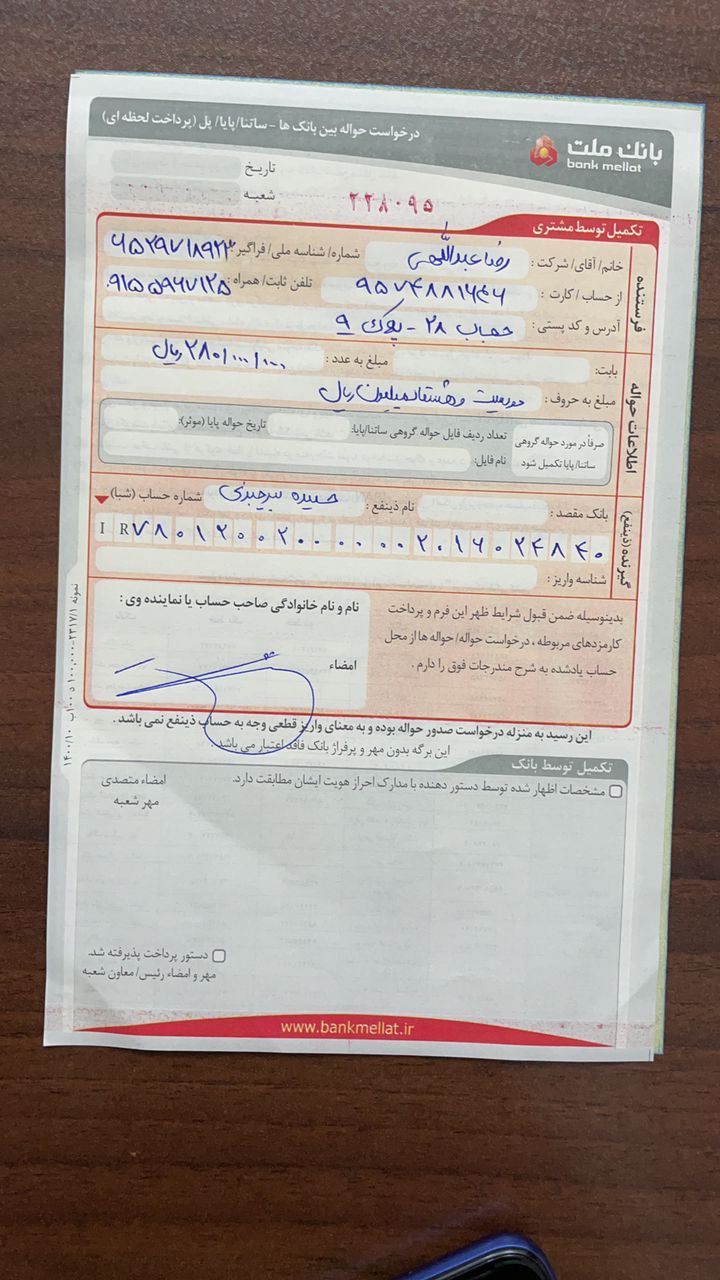 بانک ملت
bank mellat
درخواست حواله بین بانک ها - ساتنا/پایا/ پل (پرداخت لحظه ای)
تاریخ
شعبه
۲۲۸۰۹۵
تکمیل توسط مشتری
فرستنده
خانم/ آقای/ شرکت : رضا عبداللهی شماره/ شناسه ملی/ فراگیر: ۶۵۲۹۷۱۸۹۲۳
از حساب / کارت : ۹۵۷۴۸۸۱۶۴۶ تلفن ثابت/ همراه : ۰۹۱۵۵۹۶۷۱۲۵
آدرس و کد پستی : حجاب ۲۸ - پلاک ۹
اطلاعات حواله
بابت: مبلغ به عدد : ۲۸۰/۰۰۰/۰۰۰ ریال
مبلغ به حروف : دویست و هشتاد میلیون ریال
صرفاً در مورد حواله گروهی ساتنا/ پایا تکمیل شود
تعداد ردیف فایل حواله گروهی ساتنا/پایا: تاریخ حواله پایا (موثر):
نام فایل:
گیرنده (ذینفع)
بانک مقصد : نام ذینفع : حمیده بیرجندی شماره حساب (شبا)
IR ۷۸۰۱۲۰۰۲۰۰۰۰۰۰۲۰۱۶۰۲۴۸۴۰
شناسه واریز :
بدینوسیله ضمن قبول شرایط ظهر این فرم و پرداخت
کارمزدهای مربوطه ، درخواست حواله/ حواله ها از محل
حساب یادشده به شرح مندرجات فوق را دارم .
نام و نام خانوادگی صاحب حساب یا نماینده وی :
امضاء
این رسید به منزله درخواست صدور حواله بوده و به معنای واریز قطعی وجه به حساب ذینفع نمی باشد .
این برگه بدون مهر و پرفراژ بانک فاقد اعتبار می باشد .
تکمیل توسط بانک
مشخصات اظهار شده توسط دستور دهنده با مدارک احراز هویت ایشان مطابقت دارد.
امضاء متصدی
مهر شعبه
دستور پرداخت پذیرفته شد.
مهر و امضاء رئیس/ معاون شعبه
www.bankmellat.ir